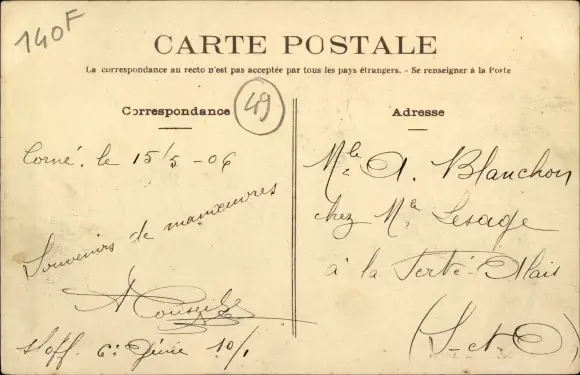 140F
CARTE POSTALE
La correspondance au recto n'est pas acceptée par tous les pays étrangers. - Se renseigner à la Poste
Correspondance
49
Corné, le 15/5 - 06
Souvenirs de manœuvres
S/off. 6e Génie 10/1
Adresse
Mlle A. Blanchon
chez Me Lesage
à la Ferté-Alais
(S-et-O)